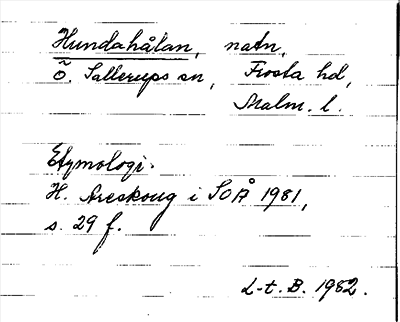 Hundahålan, natn,
Ö. Sallerups sn, Frosta hd,
Malm. l.
Etymologi.
H. Areskoug i SOÅ 1981,
s. 29 f.
L-t. B. 1982.